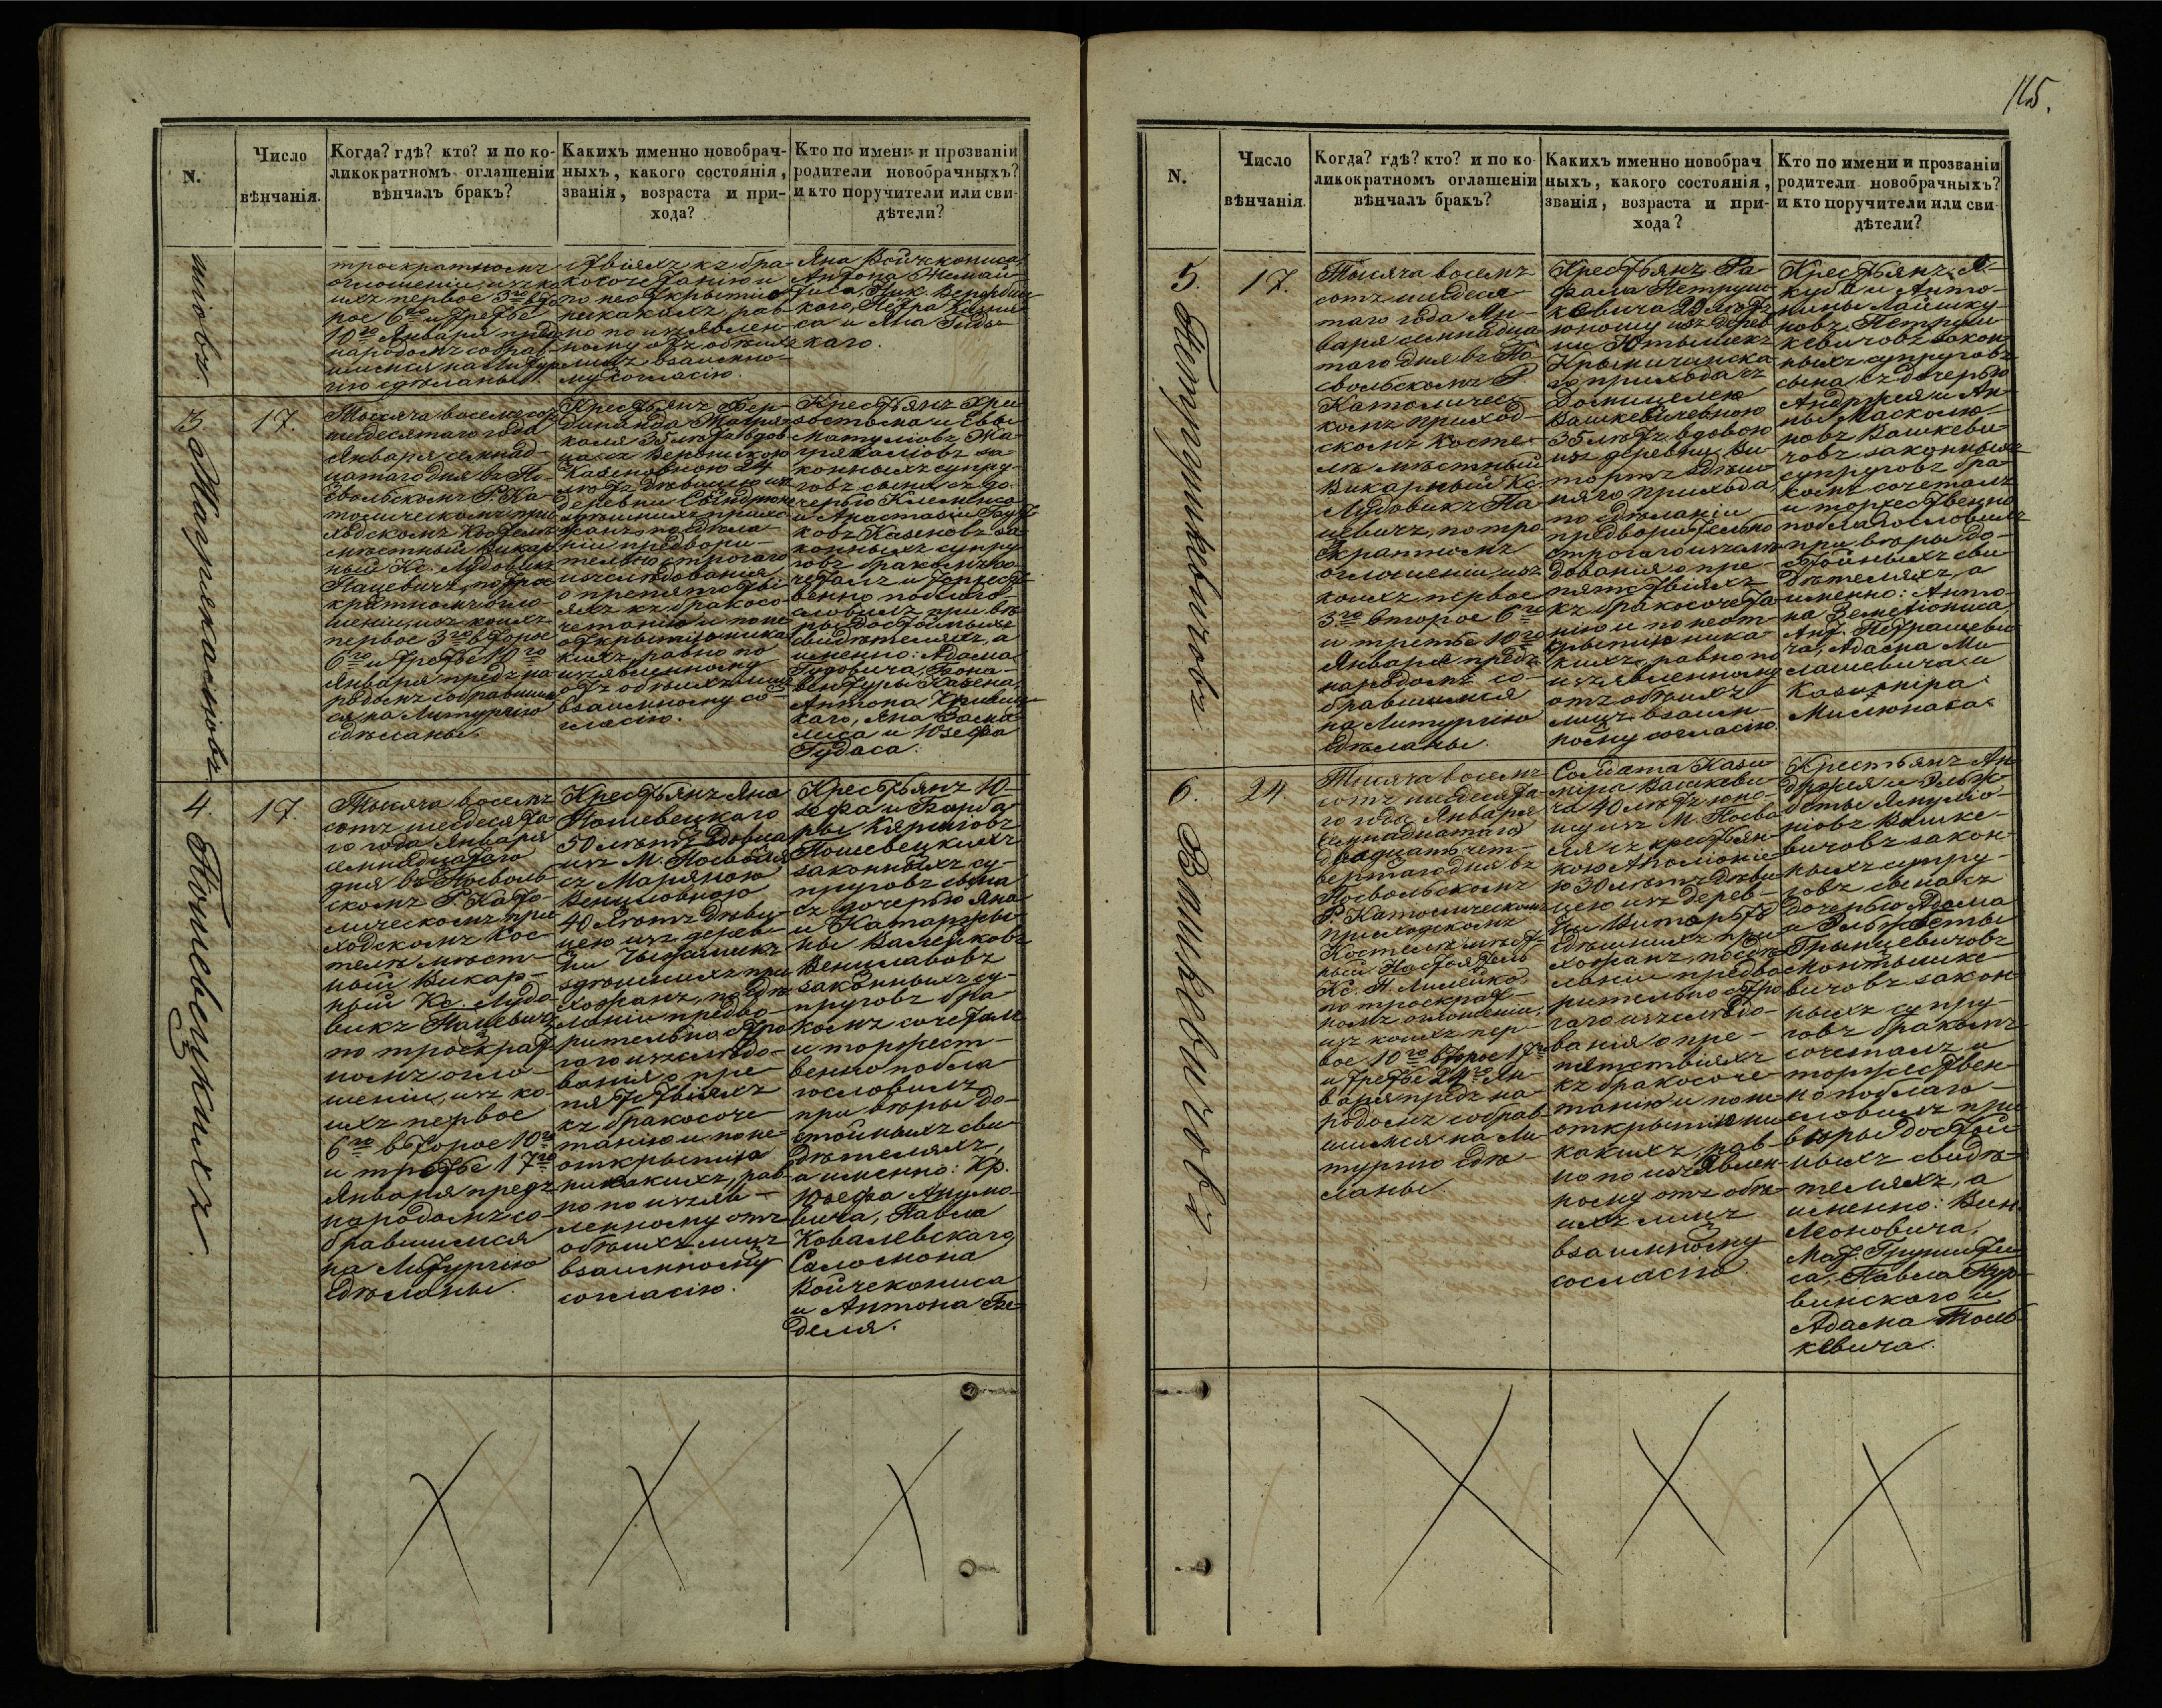 N.
Число
вѣнчанія.
Когда? гдѣ? кто? и по ко-
ликократномъ оглашеніи
вѣнчалъ бракъ?
Какихъ именно новобрач-
ныхъ, какого состоянія,
званія, возраста и при-
хода?
Кто по имени и прозванію
родители новобрачныхъ?
и кто поручители или сви-
дѣтели?
троекратномъ
оглашеніи, изъ ко
ихъ первое 3го вто
рое 6го и третье
10го Января предъ
народомъ собрав-
шимся на Литур
гію сдѣланы.
ствіяхъ къ бра-
косочетанію и
по неоткрытію
никакихъ, рав
но по изъявлен-
ному отъ обѣихъ
лицъ взаимно-
му согласію.
Яна Войчкониса
Антона
кого, Петра
са и Яна
каго.
3
17.
Тысяча восемь сотъ
шесдесятаго года
Января семнад-
цатаго дня въ По-
свольскомъ Р. Ка-
толическомъ при
ходскомъ Костелѣ
мѣстный Викар
ный Кс. Лудовикъ
Пацевичъ, по трое
кратномъ огло-
шеніи, изъ коихъ
первое 3го второе
6го и третье 10го
Января предъ на
родомъ собравшим
ся на Литургію
сдѣланы.
Крестьянъ Фер-
динанда
35 лѣтъ вдов
ца съ Вероникою
Казеновною 24
лѣтъ дѣвицею изъ
деревни
здѣшнихъ прихо
жанъ, по сдѣла-
ніи предвори-
тельно строгаго
изслѣдованія
о препятстві-
яхъ къ бракосо-
четанію и по не
открытію ника
кихъ, равно по
изъявленному
отъ обѣихъ лицъ
взаимному со-
гласію.
Крестьянъ Хри
зостома и Евы
законныхъ супру-
говъ сына съ до-
черью
и Анастасіи
ковъ Казеновъ за
конныхъ супру
говъ бракомъ со
четалъ и торжест
венно поблаго-
словилъ при вѣ
ры достойныхъ
свидѣтеляхъ, а
именно: Адама
Гудовича, Бона-
вентуры Казена,
Антона
каго, Яна
лиса и Юзефа
Гудаса.
4.
17.
Тысяча восемь
сотъ шесдесята
го года Января
семнадцатаго
дня въ Посволь-
скомъ Р. Като-
лическомъ при
ходскомъ Кос-
телѣ мѣст-
ный Викар-
ный Кс. Лудо-
викъ Пацевичъ
по троекрат-
номъ огло-
шеніи, изъ ко-
ихъ первое
6го второе 10го
и третье 17го
Января предъ
народомъ со-
бравшимся
на Литургію
сдѣланы.
Крестьянъ Яна
Пошевецкаго
50 лѣтъ вдовца
изъ М. Посволя
съ Маріяною
40 лѣтъ дѣви-
цею изъ дерев-
ни
здѣшнихъ при
хожанъ, по сдѣ
ланіи предво-
рительно стро
гаго изслѣдо-
ванія о пре-
пятствіяхъ
къ бракосоче-
танію и по не-
открытію
никакихъ, рав-
но по изъяв-
ленному отъ
обѣихъ лицъ
взаимному
согласію.
Крестьянъ Ю-
зефа и Барба
ры
Пошевецкихъ
законныхъ су-
пруговъ сына
съ дочерью Яна
и Катаржы-
ны
законныхъ су-
пруговъ бра-
комъ сочеталъ
и торжест-
венно побла
гословилъ
при вѣры до-
стойныхъ сви
дѣтеляхъ,
а именно: Кр.
Юзефа
вича, Павла
Ковалевскаго,
Саломона
Войчекониса
и Антона Ге-
деля.
Пошевецкихъ.
125.
N.
Число
вѣнчанія.
Когда? гдѣ? кто? и по ко-
ликократномъ оглашеніи
вѣнчалъ бракъ?
Какихъ именно новобрач
ныхъ, какого состоянія,
званія, возраста и при-
хода?
Кто по имени и прозванію
родители новобрачныхъ?
и кто поручители или сви-
дѣтели?
5.
Петрушкевичовъ.
17.
Тысяча восемь
сотъ шесдеся-
таго года Ян-
варя семнадца
таго дня въ По
свольскомъ Р.
Католичес-
комъ приход-
скомъ Косте-
лѣ мѣстный
Викарный Кс.
Лудовикъ Па
цевичъ, по тро
екратномъ
оглошеніи, изъ
коихъ первое
3го второе 6го
и третье 10го
Января предъ
народомъ со-
бравшимся
на Литургію
сдѣланы.
Крестьянъ Ра
фала Петруш
кевича 29 лѣтъ
юношу изъ дерев
ни
го прихода съ
Домицелею
Вашкевичевною
35 лѣтъ вдовою
изъ деревни Ви
торгъ здѣш
няго прихода
по сдѣланіи
предворительно
строгаго изслѣ
дованія о пре-
пятствіяхъ
къ бракосочета
нію и по неот-
крытію ника-
кихъ, равно по
изъявленному
отъ обѣихъ
лицъ взаим-
ному согласію.
Крестьянъ Я-
куба и Анто-
нины
новъ Петруш
кевичовъ закон-
ныхъ супруговъ
сына съ дочерью
Андржея и Ан-
ны
новъ Вашкеви
човъ законныхъ
супруговъ бра
комъ сочеталъ
и торжественно
поблагословилъ
при вѣры до-
стойныхъ сви
дѣтеляхъ, а
именно: Анто-
на
Ант. Петрашеви
ча, Адама Ми
лашевича и
Казиміра
Милюнаса.
6.
Вашкевичовъ.
24.
Тысяча восемь
сотъ шесдесята-
го года Января
двадцать чет-
вертаго дня въ
Посвольскомъ
Р. Католическомъ
приходскомъ
Костелѣ мѣст-
ный Настоятель
Кс. П.
по троекрат-
номъ оглошеніи,
изъ коихъ пер-
вое 10го второе 17го
и третье 24го Ян-
варя предъ на-
родомъ собрав-
шимся на Ли-
тургію сдѣ-
ланы.
Солдата Кази-
міра Вашкеви-
ча 40 лѣтъ юно-
шу изъ М. Посво
ля съ крестьян-
кою Аполоніе
ю 30 лѣтъ дѣви
цею изъ дерев-
ни
здѣшнихъ при
хожанъ, по сдѣ
ланіи предво
рительно стро
гаго изслѣдо-
ванія о пре-
пятствіяхъ
къ бракосоче-
танію и по не
открытію ни
какихъ, рав-
но по изъявлен-
ному отъ обѣ-
ихъ лицъ
взаимному
согласію.
Крестьянъ Ан
држея и Эльж-
беты
ніовъ Вашке-
вичовъ закон-
ныхъ супру-
говъ сына съ
дочерью Адама
и Эльжбеты
Грынцевичовъ
вичовъ закон
ныхъ супру-
говъ бракомъ
сочеталъ и
торжествен-
но поблаго-
словилъ при
вѣры достой
ныхъ свидѣ-
теляхъ, а
именно: Вин.
Леоновича,
са, Павла
винскаго и
Адама
кевича.